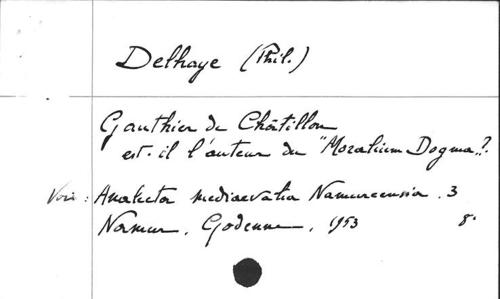 Delhaye (Phil.)
Gauthier de Châtillon
est-il l'auteur du "Moralium Dogma"?
Voir : Analecta mediaevalia Namurcensia . 3
Namur, Godenne, 1953 8°